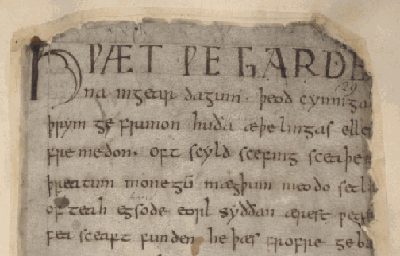 HǷÆT ǷE GARDE
na in gear dagum. þeod cyninga
þrym ge frunon hu ða æþelingas elle
fre medon. oft scyld scefing sceaþe
þreatum monegū mægþum meodo setla
of teah egsode eorl syððan ærest ƿea
fea sceaft funden he þæs frofre ge ba